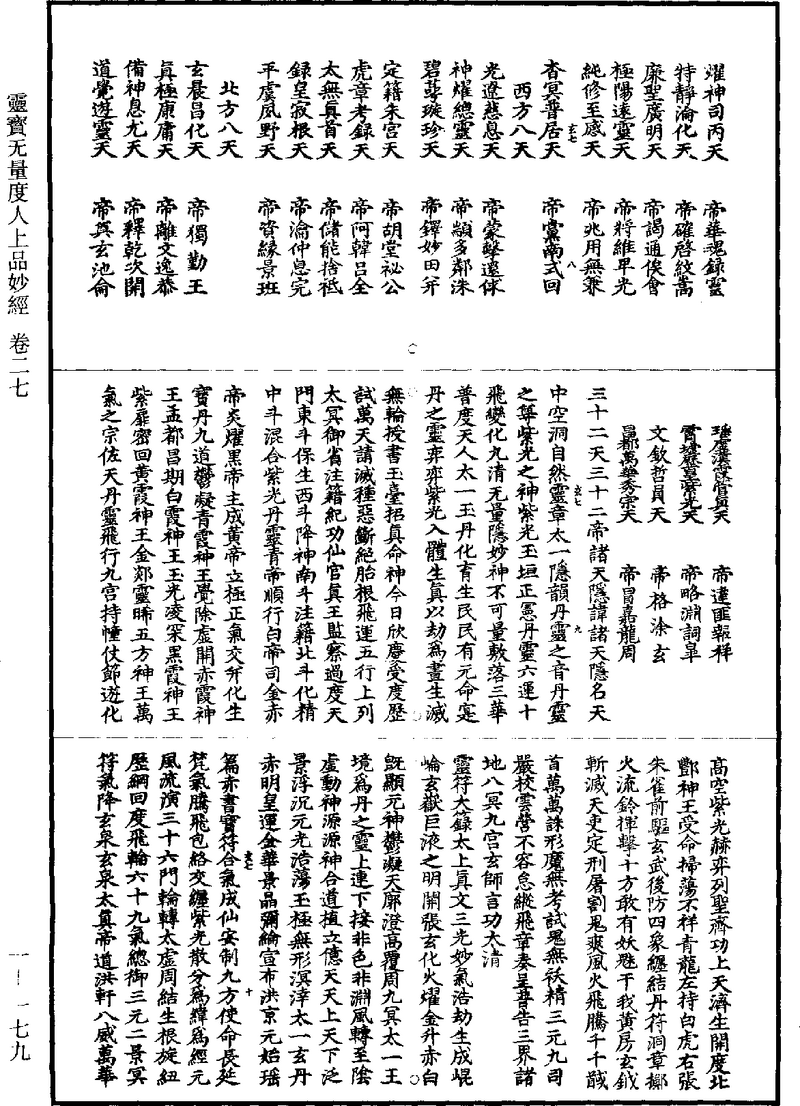 靈寶无量度人上品妙經　卷二七
一－一七九
燿神司丙天　帝華魂錄靈
特靜淪化天　帝確啓紋嵩
廉聖廣明天　帝謁通俟會
極陽遠靈天　帝將維早光
純修至感天　帝兆用無兼
杳冥普居天　帝黨南式回
玄七　八
西方八天
光遼慈息天　帝蒙擊邅休
神燿總靈天　帝顓多鄰洙
碧蘂璇珍天　帝鐸妙田弁
定籍朱宫天　帝胡堂祕公
虎章考録天　帝阿韓吕全
太無真首天　帝儲能捨祗
録皇寂根天　帝淪仲息完
平虞風野天　帝資緣景班
北方八天
玄晨昌化天　帝獨勤王
真極康庸天　帝離文逸恭
備神息尤天　帝釋乾次開
道覺遊靈天　帝與玄池侖
帝達匯報祥
帝略淵詞皐
文欽哲員天　帝格涂玄
昌鄰萬華秀宗天　帝冒嘉龍周
三十二天三十二帝諸天隱諱諸天隱名天
玄七　九
中空洞自然靈章太一隱韻丹靈之音丹靈
之舉紫光之神紫光玉垣正憲丹靈六運十
飛變化九清无量隱妙神不可量敷落三華
普度天人太一玉丹化育生民民有元命寔
丹之靈弈弈紫光入體生真以劫爲晝生滅
無輪授書玉臺招真命神今日欣慶受度歷
試萬天請滅種惡斷絶胎根飛運五行上列
太冥御省注籍紀功仙官真王監察過度天
門東斗保生西斗降神南斗注籍北斗化精
中斗混合紫光丹靈青帝順行白帝司金赤
帝炎燿黑帝主成黄帝立極正氣交弁化生
寶丹九道鬱凝青霞神王覺除虚開赤霞神
王孟都昌期白霞神王玉光凌冞黑霞神王
紫扉密回黄霞神王金郊靈晞五方神王萬
氣之宗佐天丹靈飛行九宫持幢仗節遊化
高空紫光赫弈列聖齊功上天濟生開度北
酆神王受命掃蕩不祥青龍左持白虎右張
朱雀前驅玄武後防四衆纏結丹符洞章擲
火流鈴揮擊十方敢有妖魅干我黄房玄鉞
斬滅天吏定刑屠割鬼爽風火飛騰千千馘
首萬萬誅形魔無考試鬼無祅精三元九司
嚴校雲營不容怠縱飛章奏呈普告三界諸
地八冥九宫玄師言功太清
靈符大籙太上真文三光妙氣浩劫生成崐
崘玄嶽巨液之明開張玄化火燿金升赤白
旣顯元神鬱凝天廓澄高覆周九冥太一王
境爲丹之靈上連下接非色非淵風轉至陰
虚動神源源神合道植立億天天上天下泛
景浮沉元光浩蕩王極無形溟滓太一玄丹
赤明皇運金華景晶彌綸宣布洪京元始瑶
篇赤書寶符合氣成仙安制九方使命長延
玄七　十
梵氣騰飛包絡交纏紫光散分爲緯爲經元
風流演三十六門輪轉太虚周結生根旋紐
歷綱回度飛輪六十九氣總御三元二景冥
符氣降玄泉玄泉太真帝道洪軒八威萬華